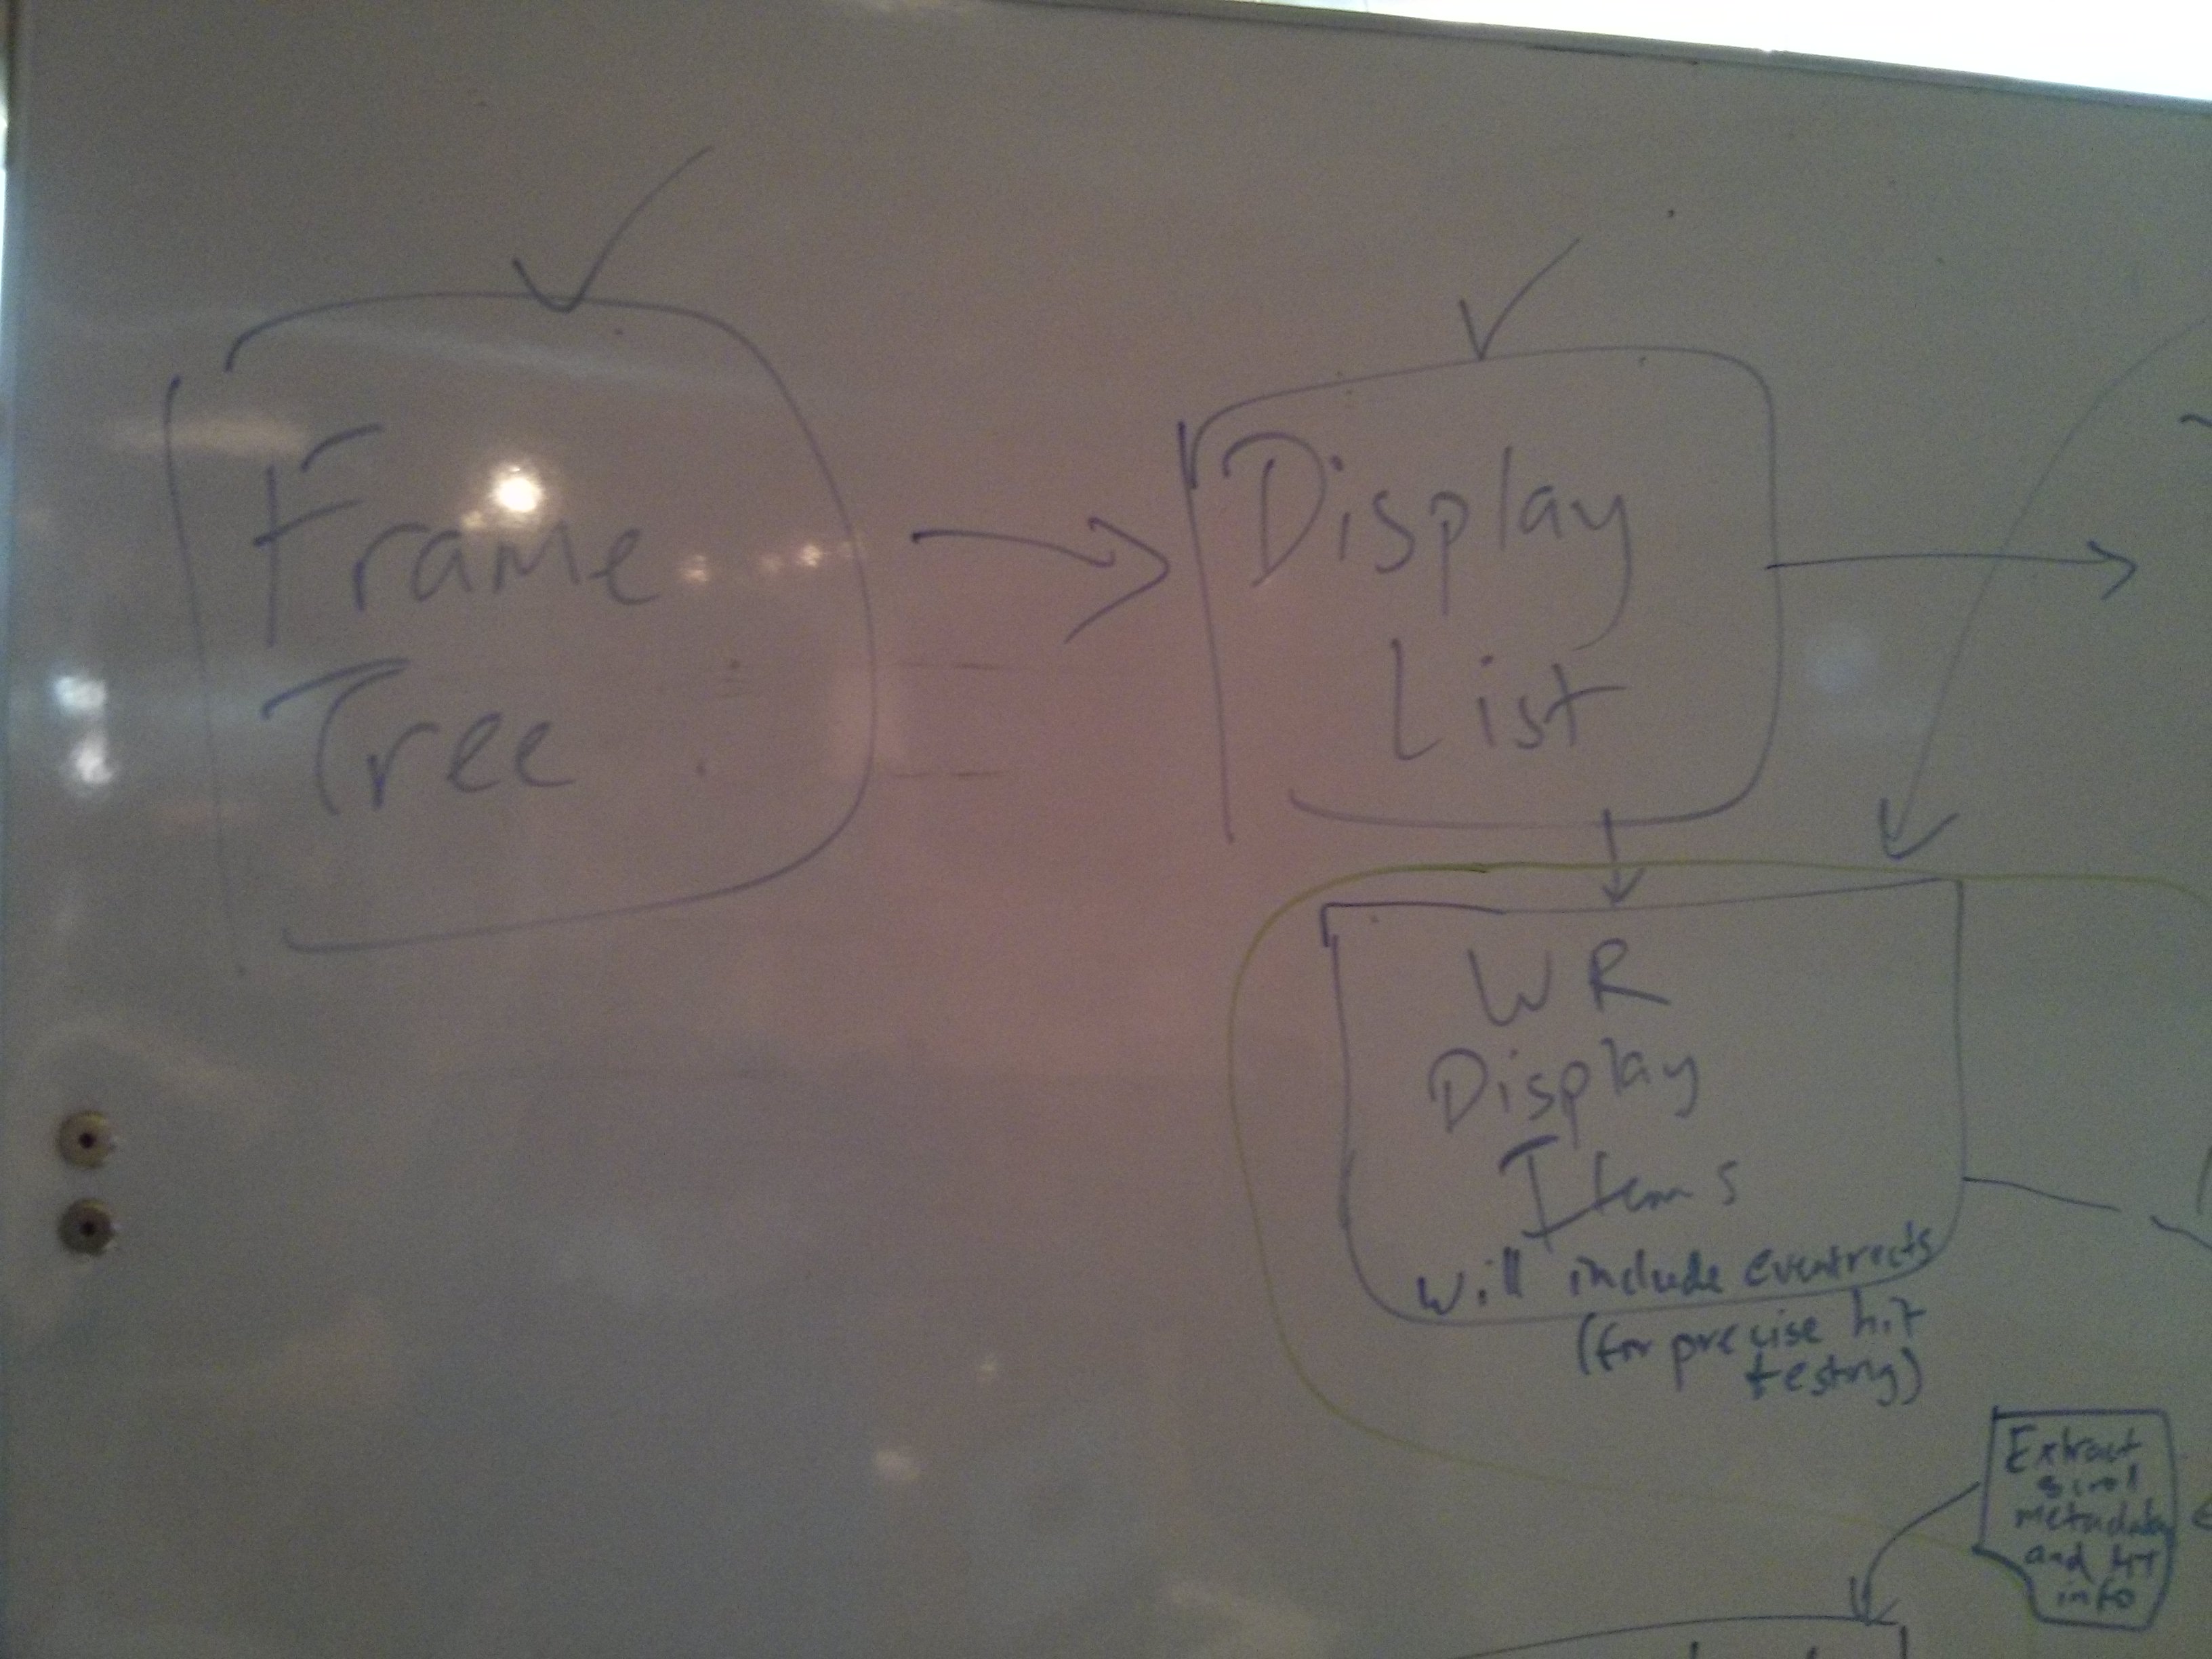 Frame
Tree
Display
List
WR
Display
Items
will include eventrects
(for precise hit
testing)
Extract
scroll
metadata
and HT
info